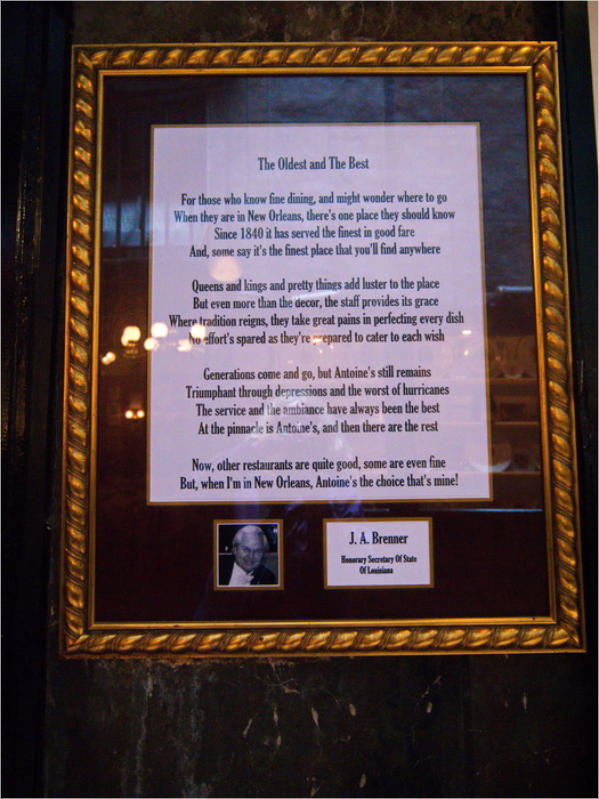 The Oldest and The Best
For those who know fine dining, and might wonder where to go
When they are in New Orleans, there's one place they should know
Since 1840 it has served the finest in good fare
And, some say it's the finest place that you'll find anywhere
Queens and kings and pretty things add luster to the place
But even more than the decor, the staff provides its grace
Where tradition reigns, they take great pains in perfecting every dish
No effort's spared as they're prepared to cater to each wish
Generations come and go, but Antoine's still remains
Triumphant through depressions and the worst of hurricanes
The service and the ambiance have always been the best
At the pinnacle is Antoine's, and then there are the rest
Now, other restaurants are quite good, some are even fine
But, when I'm in New Orleans, Antoine's the choice that's mine!
J. A. Brenner
Honorary Secretary Of State
Of Louisiana